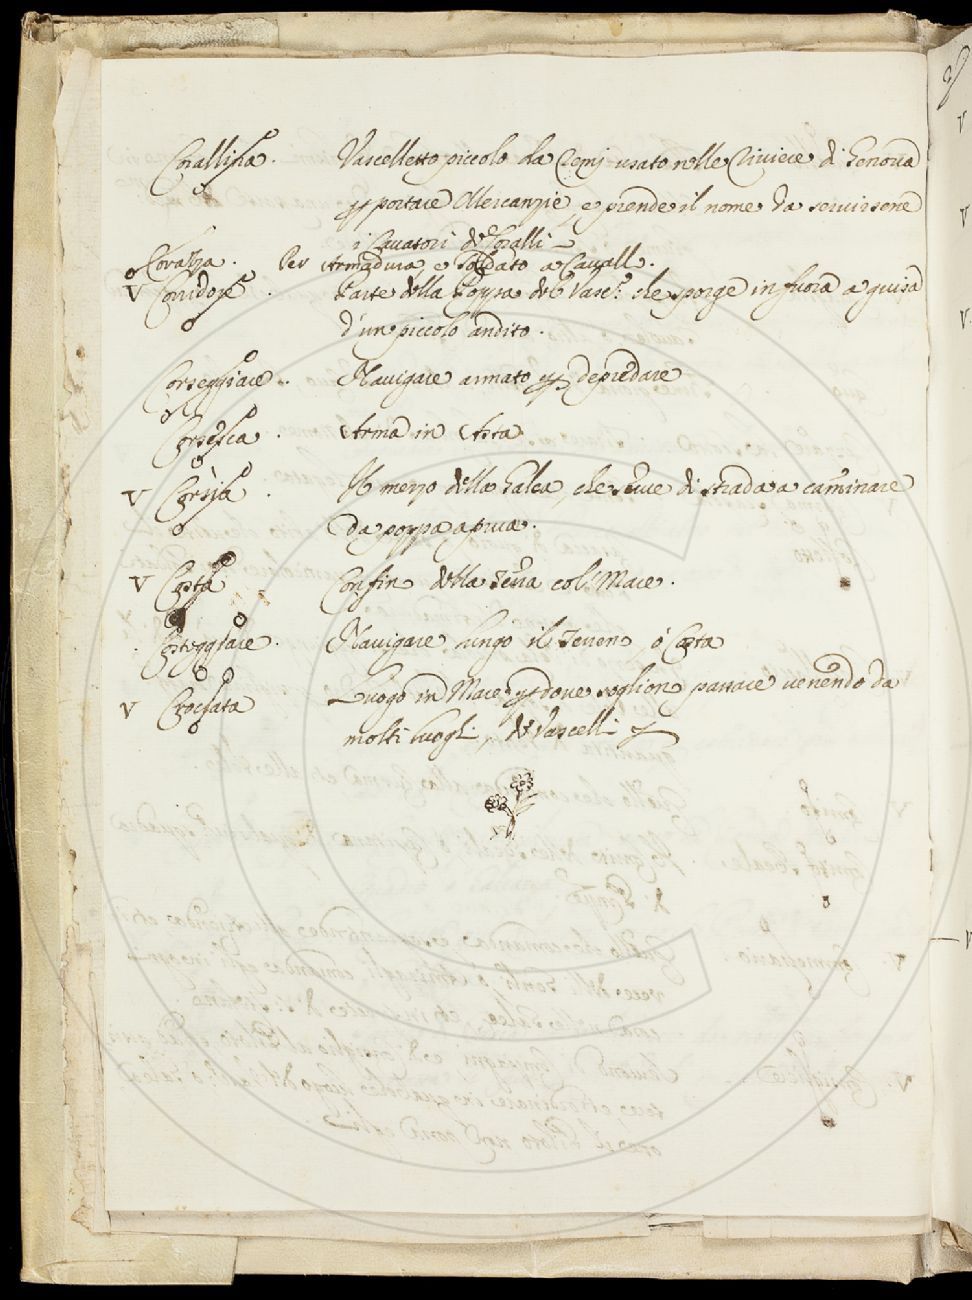 Corallina. Vascelletto piccolo da Remi usato nelle Riviere di Genova
per portare Mercanzie, e prende il nome da servirsene
i Cavatori de Coralli
Corazza. Per Armadura, e Soldato a Cavallo.
V Corridore. Parte della Poppa del Vasc.o che sporge in fuora a guisa
d'un piccolo andito.
Corseggiare.. Navigare armato per depredare
Corsesca. Arma in Asta
V Corsia. Il mezzo della Galea, che serve di strada a caminare
da poppa a prua.
V Costa Confin della Terra col Mare.
Costeggiare. Navigare lungo il Terren, ò Costa
V Crociata Luogo in Mare per dove soglion passare venendo da
molti luoghi, de Vascelli